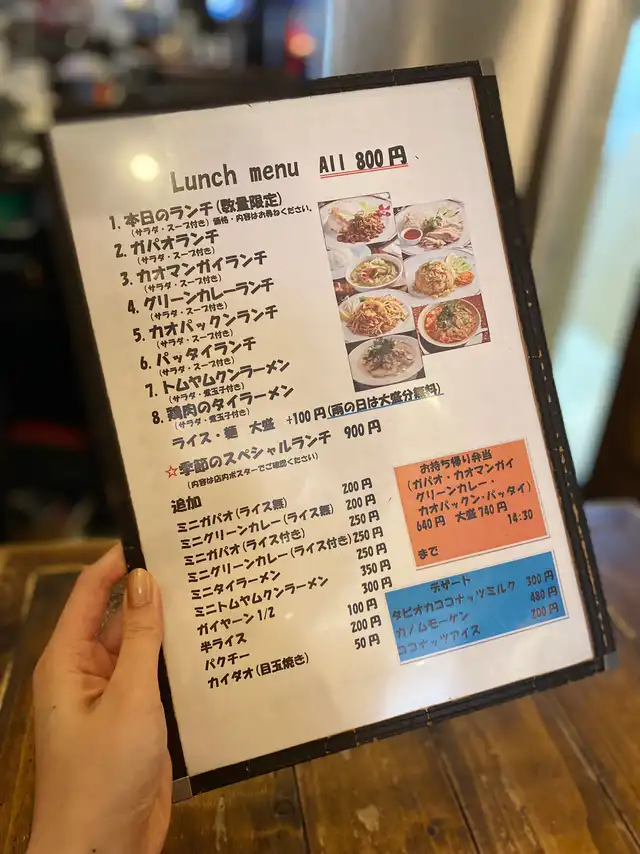 Lunch menu All 800円
1. 本日のランチ(数量限定)
(サラダ・スープ付き) 価格・内容はお尋ねください。
2. ガパオランチ
(サラダ・スープ付き)
3. カオマンガイランチ
(サラダ・スープ付き)
4. グリーンカレーランチ
(サラダ・スープ付き)
5. カオパックンランチ
(サラダ・スープ付き)
6. パッタイランチ
(サラダ・スープ付き)
7. トムヤムクンラーメン
(サラダ・煮玉子付き)
8. 鶏肉のタイラーメン
(サラダ・煮玉子付き)
ライス・麺 大盛 +100円(雨の日は大盛分無料)
☆季節のスペシャルランチ 900円
(内容は店内ポスターでご確認ください)
追加
ミニガパオ(ライス無) 200円
ミニグリーンカレー(ライス無) 200円
ミニガパオ(ライス付き) 250円
ミニグリーンカレー(ライス付き) 250円
ミニタイラーメン 250円
ミニトムヤムクンラーメン 350円
ガイヤーン1/2 300円
半ライス 100円
パクチー 200円
カイダオ(目玉焼き) 50円
お持ち帰り弁当
(ガパオ・カオマンガイ
グリーンカレー・
カオパックン・パッタイ)
640円 大盛740円
14:30
まで
デザート
タピオカココナッツミルク 300円
カノムモーケン 480円
ココナッツアイス 200円